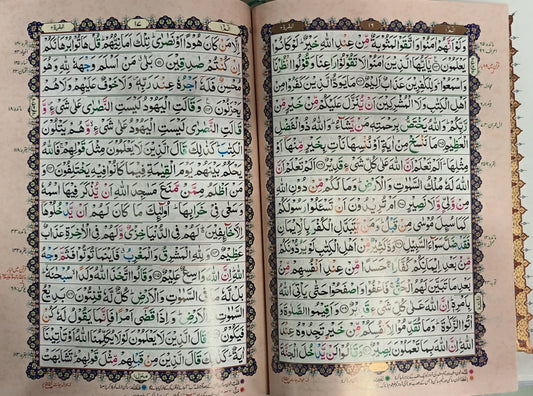 البقرة ٢
١٦
الٓمّٓ ١
وَلَوْ اَنَّهُمْ اٰمَنُوْا وَاتَّقَوْا لَمَثُوْبَةٌ مِّنْ عِنْدِ اللّٰهِ خَيْرٌ لَوْ كَانُوْا
يَعْلَمُوْنَ يٰٓاَيُّهَا الَّذِيْنَ اٰمَنُوْا لَا تَقُوْلُوْا رَاعِنَا وَقُوْلُوا انْظُرْنَا
وَاسْمَعُوْا وَلِلْكٰفِرِيْنَ عَذَابٌ اَلِيْمٌ مَا يَوَدُّ الَّذِيْنَ كَفَرُوْا مِنْ
اَهْلِ الْكِتٰبِ وَلَا الْمُشْرِكِيْنَ اَنْ يُّنَزَّلَ عَلَيْكُمْ مِّنْ خَيْرٍ مِّنْ
رَّبِّكُمْ وَاللّٰهُ يَخْتَصُّ بِرَحْمَتِهٖ مَنْ يَّشَآءُ وَاللّٰهُ ذُو الْفَضْلِ
الْعَظِيْمِ مَا نَنْسَخْ مِنْ اٰيَةٍ اَوْ نُنْسِهَا نَاْتِ بِخَيْرٍ مِّنْهَآ اَوْ
مِثْلِهَا اَلَمْ تَعْلَمْ اَنَّ اللّٰهَ عَلٰى كُلِّ شَيْءٍ قَدِيْرٌ اَلَمْ تَعْلَمْ اَنَّ
اللّٰهَ لَهٗ مُلْكُ السَّمٰوٰتِ وَالْاَرْضِ وَمَا لَكُمْ مِّنْ دُوْنِ اللّٰهِ
مِنْ وَّلِيٍّ وَّلَا نَصِيْرٍ اَمْ تُرِيْدُوْنَ اَنْ تَسْـَٔلُوْا رَسُوْلَكُمْ
كَمَا سُئِلَ مُوْسٰى مِنْ قَبْلُ وَمَنْ يَّتَبَدَّلِ الْكُفْرَ بِالْاِيْمَانِ
فَقَدْ ضَلَّ سَوَآءَ السَّبِيْلِ وَدَّ كَثِيْرٌ مِّنْ اَهْلِ الْكِتٰبِ لَوْ يَرُدُّوْنَكُمْ
مِّنْ بَعْدِ اِيْمَانِكُمْ كُفَّارًا حَسَدًا مِّنْ عِنْدِ اَنْفُسِهِمْ مِّنْ
بَعْدِ مَا تَبَيَّنَ لَهُمُ الْحَقُّ فَاعْفُوْا وَاصْفَحُوْا حَتّٰى يَاْتِيَ اللّٰهُ
بِاَمْرِهٖ اِنَّ اللّٰهَ عَلٰى كُلِّ شَيْءٍ قَدِيْرٌ وَاَقِيْمُوا الصَّلٰوةَ وَ
اٰتُوا الزَّكٰوةَ وَمَا تُقَدِّمُوْا لِاَنْفُسِكُمْ مِّنْ خَيْرٍ تَجِدُوْهُ عِنْدَ
اللّٰهِ اِنَّ اللّٰهَ بِمَا تَعْمَلُوْنَ بَصِيْرٌ وَقَالُوْا لَنْ يَّدْخُلَ الْجَنَّةَ
البقرة ٢
١٧
الٓمّٓ ١
اِلَّا مَنْ كَانَ هُوْدًا اَوْ نَصٰرٰى تِلْكَ اَمَانِيُّهُمْ قُلْ هَاتُوْا بُرْهَانَكُمْ
اِنْ كُنْتُمْ صٰدِقِيْنَ بَلٰى مَنْ اَسْلَمَ وَجْهَهٗ لِلّٰهِ وَهُوَ
مُحْسِنٌ فَلَهٗٓ اَجْرُهٗ عِنْدَ رَبِّهٖ وَلَا خَوْفٌ عَلَيْهِمْ وَلَا هُمْ
يَحْزَنُوْنَ وَقَالَتِ الْيَهُوْدُ لَيْسَتِ النَّصٰرٰى عَلٰى شَيْءٍ وَّ
قَالَتِ النَّصٰرٰى لَيْسَتِ الْيَهُوْدُ عَلٰى شَيْءٍ وَّهُمْ يَتْلُوْنَ
الْكِتٰبَ كَذٰلِكَ قَالَ الَّذِيْنَ لَا يَعْلَمُوْنَ مِثْلَ قَوْلِهِمْ فَاللّٰهُ
يَحْكُمُ بَيْنَهُمْ يَوْمَ الْقِيٰمَةِ فِيْمَا كَانُوْا فِيْهِ يَخْتَلِفُوْنَ وَ
مَنْ اَظْلَمُ مِمَّنْ مَّنَعَ مَسٰجِدَ اللّٰهِ اَنْ يُّذْكَرَ فِيْهَا اسْمُهٗ
وَسَعٰى فِيْ خَرَابِهَا اُولٰٓئِكَ مَا كَانَ لَهُمْ اَنْ يَّدْخُلُوْهَآ
اِلَّا خَآئِفِيْنَ لَهُمْ فِي الدُّنْيَا خِزْيٌ وَّلَهُمْ فِي الْاٰخِرَةِ عَذَابٌ
عَظِيْمٌ وَلِلّٰهِ الْمَشْرِقُ وَالْمَغْرِبُ فَاَيْنَمَا تُوَلُّوْا فَثَمَّ وَجْهُ
اللّٰهِ اِنَّ اللّٰهَ وَاسِعٌ عَلِيْمٌ وَقَالُوا اتَّخَذَ اللّٰهُ وَلَدًا سُبْحٰنَهٗ
بَلْ لَّهٗ مَا فِي السَّمٰوٰتِ وَالْاَرْضِ كُلٌّ لَّهٗ قٰنِتُوْنَ بَدِيْعُ
السَّمٰوٰتِ وَالْاَرْضِ وَاِذَا قَضٰٓى اَمْرًا فَاِنَّمَا يَقُوْلُ لَهٗ كُنْ
فَيَكُوْنُ وَقَالَ الَّذِيْنَ لَا يَعْلَمُوْنَ لَوْلَا يُكَلِّمُنَا اللّٰهُ اَوْ تَاْتِيْنَآ
اٰيَةٌ كَذٰلِكَ قَالَ الَّذِيْنَ مِنْ قَبْلِهِمْ مِّثْلَ قَوْلِهِمْ تَشَابَهَتْ